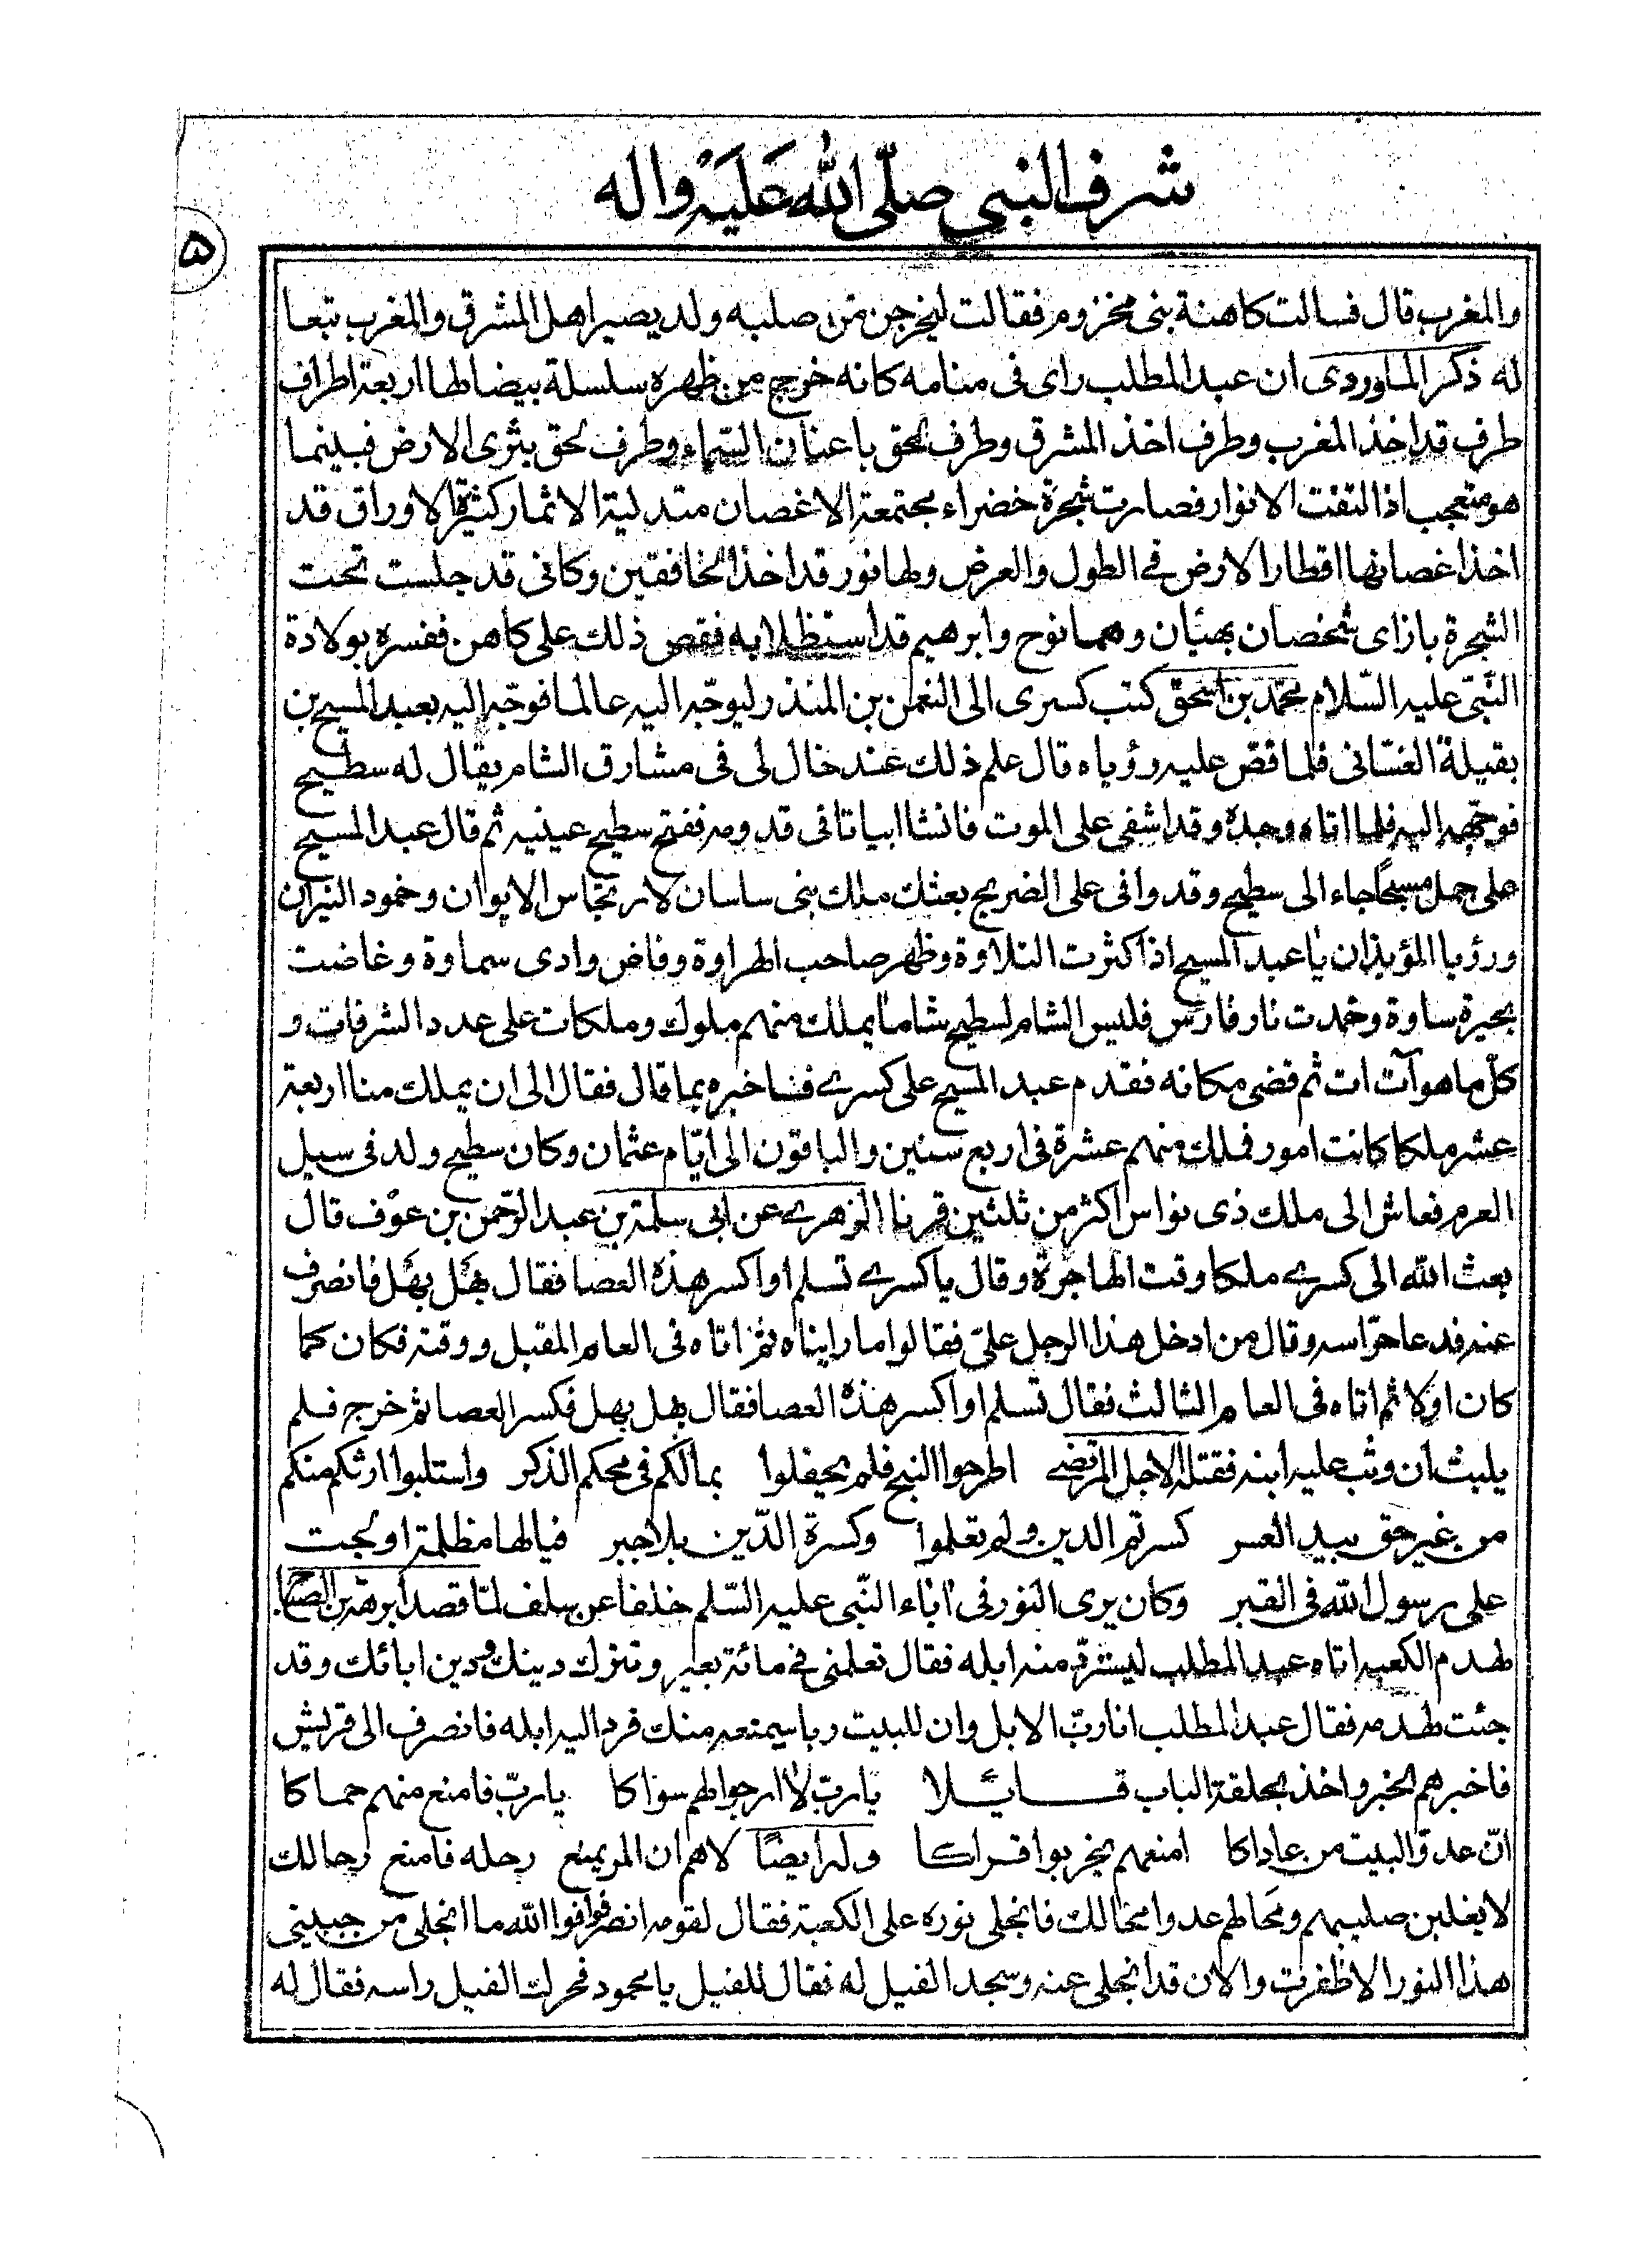 شرف النبي صلّى الله عَلَيْه واله
۵
والمغرب قال فسالت كاهنة بنى مخزوم فقالت ليخرجن من صلبه ولد يصير اهل المشرق والمغرب تبعا
له ذكر الماوردى ان عبد المطلب راى فى منامه كانه خرج من ظهره سلسلة بيضا لها اربعة اطراف
طرف قد اخذ المغرب وطرف اخذ المشرق وطرف لحق باعنان السّماء وطرف لحق بثرى الارض فبينما
هو متعجب اذ التفت الانوار فصارت شجرة خضراء مجتمعة الاغصان متدلية الاثمار كثيرة الاوراق قد
اخذ اغصانها اقطار الارض فى الطول والعرض ولها نور قد اخذ الخافقين وكانى قد جلست تحت
الشجرة بازاى شخصان بهيّان وهما نوح وابرهيم قد استظلا به فقص ذلك على كاهن ففسره بولادة
النّبىّ عليه السّلام محمد بن اسحق كتب كسرى الى النعمن بن المنذر ليوجّه اليه عالما فوجّه اليه بعبد المسيح بن
بقيلة الغسّانى فلما قصّ عليه رؤياه قال علم ذلك عند خال لى فى مشارق الشام يقال له سطيح
فوجّهه اليه فلما اتاه وجده وقد اشفى على الموت فانشا ابياتا فى قدومه ففتح سطيح عينيه ثم قال عبد المسيح
على جمل مسيحا جاء الى سطيح وقد وافى على الضريح بعثك ملك بنى ساسان لارتجاس الايوان وخمود النيران
ورؤيا المؤبذان يا عبد المسيح اذا كثرت التلاوة وظهر صاحب الهراوة وفاض وادى سماوة وغاضت
بحيرة ساوة وخمدت نار فارس فليس الشام لسطيح شاما يملك منهم ملوك وملكات على عدد الشرفات و
كلّ ما هو آت ات ثم قضى مكانه فقدم عبد المسيح على كسرے فاخبره بما قال فقال الى ان يملك منا اربعة
عشر ملكا كانت امور فملك منهم عشرة فى اربع سنين والباقون الى ايّام عثمان وكان سطيح ولد فى سيل
العرم فعاش الى ملك ذى نواس اكثر من ثلثين قرنا الزهرے عن ابى سلمة بن عبد الرّحمن بن عوْف قال
بعث الله الى كسرے ملكا وقت الهاجرة وقال يا كسرے تسلم او اكسر هذه العصا فقال بهَل بهَل فانصرف
عنه فدعا حرّاسه وقال من ادخل هذا الرجل علىّ فقالوا ما رايناه ثم اتاه فى العام المقبل ووقته فكان كما
كان اولا ثم اتاه فى العام الثالث فقال تسلم او اكسر هذه العصا فقال بهل بهل فكسر العصا ثم خرج فلم
يلبث ان وثب عليه ابنه فقتله الاجل المرتضے اطرحوا النهج فلم يحفلوا بمالكم فى محكم الذكر واستلبوا ارثكم منكم
من غير حق بيد العسر كسرتم الدين ولم تعلموا وكسرة الدّين بلا جبر فيالها مظلمة اولجت
على رسول الله فى القبر وكان يرى النور فى اباء النّبى عليه السّلم خلفا عن سلف لمّا قصد ابرهة بن الصباح
لهدم الكعبه اتاه عبد المطلب ليستردّ منه ابله فقال تعلمنى فى مائة بعير وتترك دينك ودين ابائك وقد
جئت لهدمه فقال عبد المطلب انا ربّ الابل وان للبيت ربا سيمنعه منك فرد اليه ابله فانصرف الى قريش
فاخبرهم الخبر واخذ بحلقة الباب قـــــائـلا يا ربّ لا ارجوا لهم سواكا يا ربّ فامنع منهم حماكا
انّ عدوّ البيت من عاداكا امنعهم يخربوا قراكا وله ايضًا لاهم ان المرء يمنع رحله فامنع رحالك
لا يغلبن صليبهم ومحالهم عدوا محالك فانجلى نوره على الكعبة فقال لقومه انصرفوا فوالله ما انجلى من جبينى
هذا النور الا ظفرت والان قد انجلى عنه وسجد الفيل له فقال للفيل يا محمود فحرك الفيل راسه فقال له